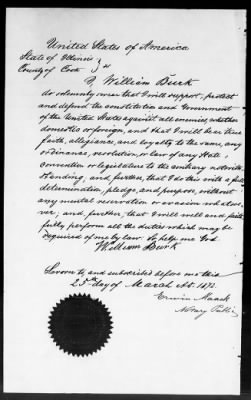 United States of America
State of Illinois }
County of Cook } ss
I William Burk
do solemnly swear that I will support, protect
and defend the constitution and Government
of the United States against all enemies, whether
domestic or foreign, and that I will bear true
faith, allegiance, and loyalty to the same, any
ordinance, resolution, or law of any State,
convention or legislature to the contrary notwith-
standing, and further, that I do this with a full
determination, pledge, and purpose, without
any mental reservation or evasion whatsoe-
ver, and, further, that I will well and faith
fully perform all the duties which may be
required of me by law. So help me God
William Burk
Sworn to and subscribed before me this
25th day of March A.D. 1872.
Erwin
Notary Public